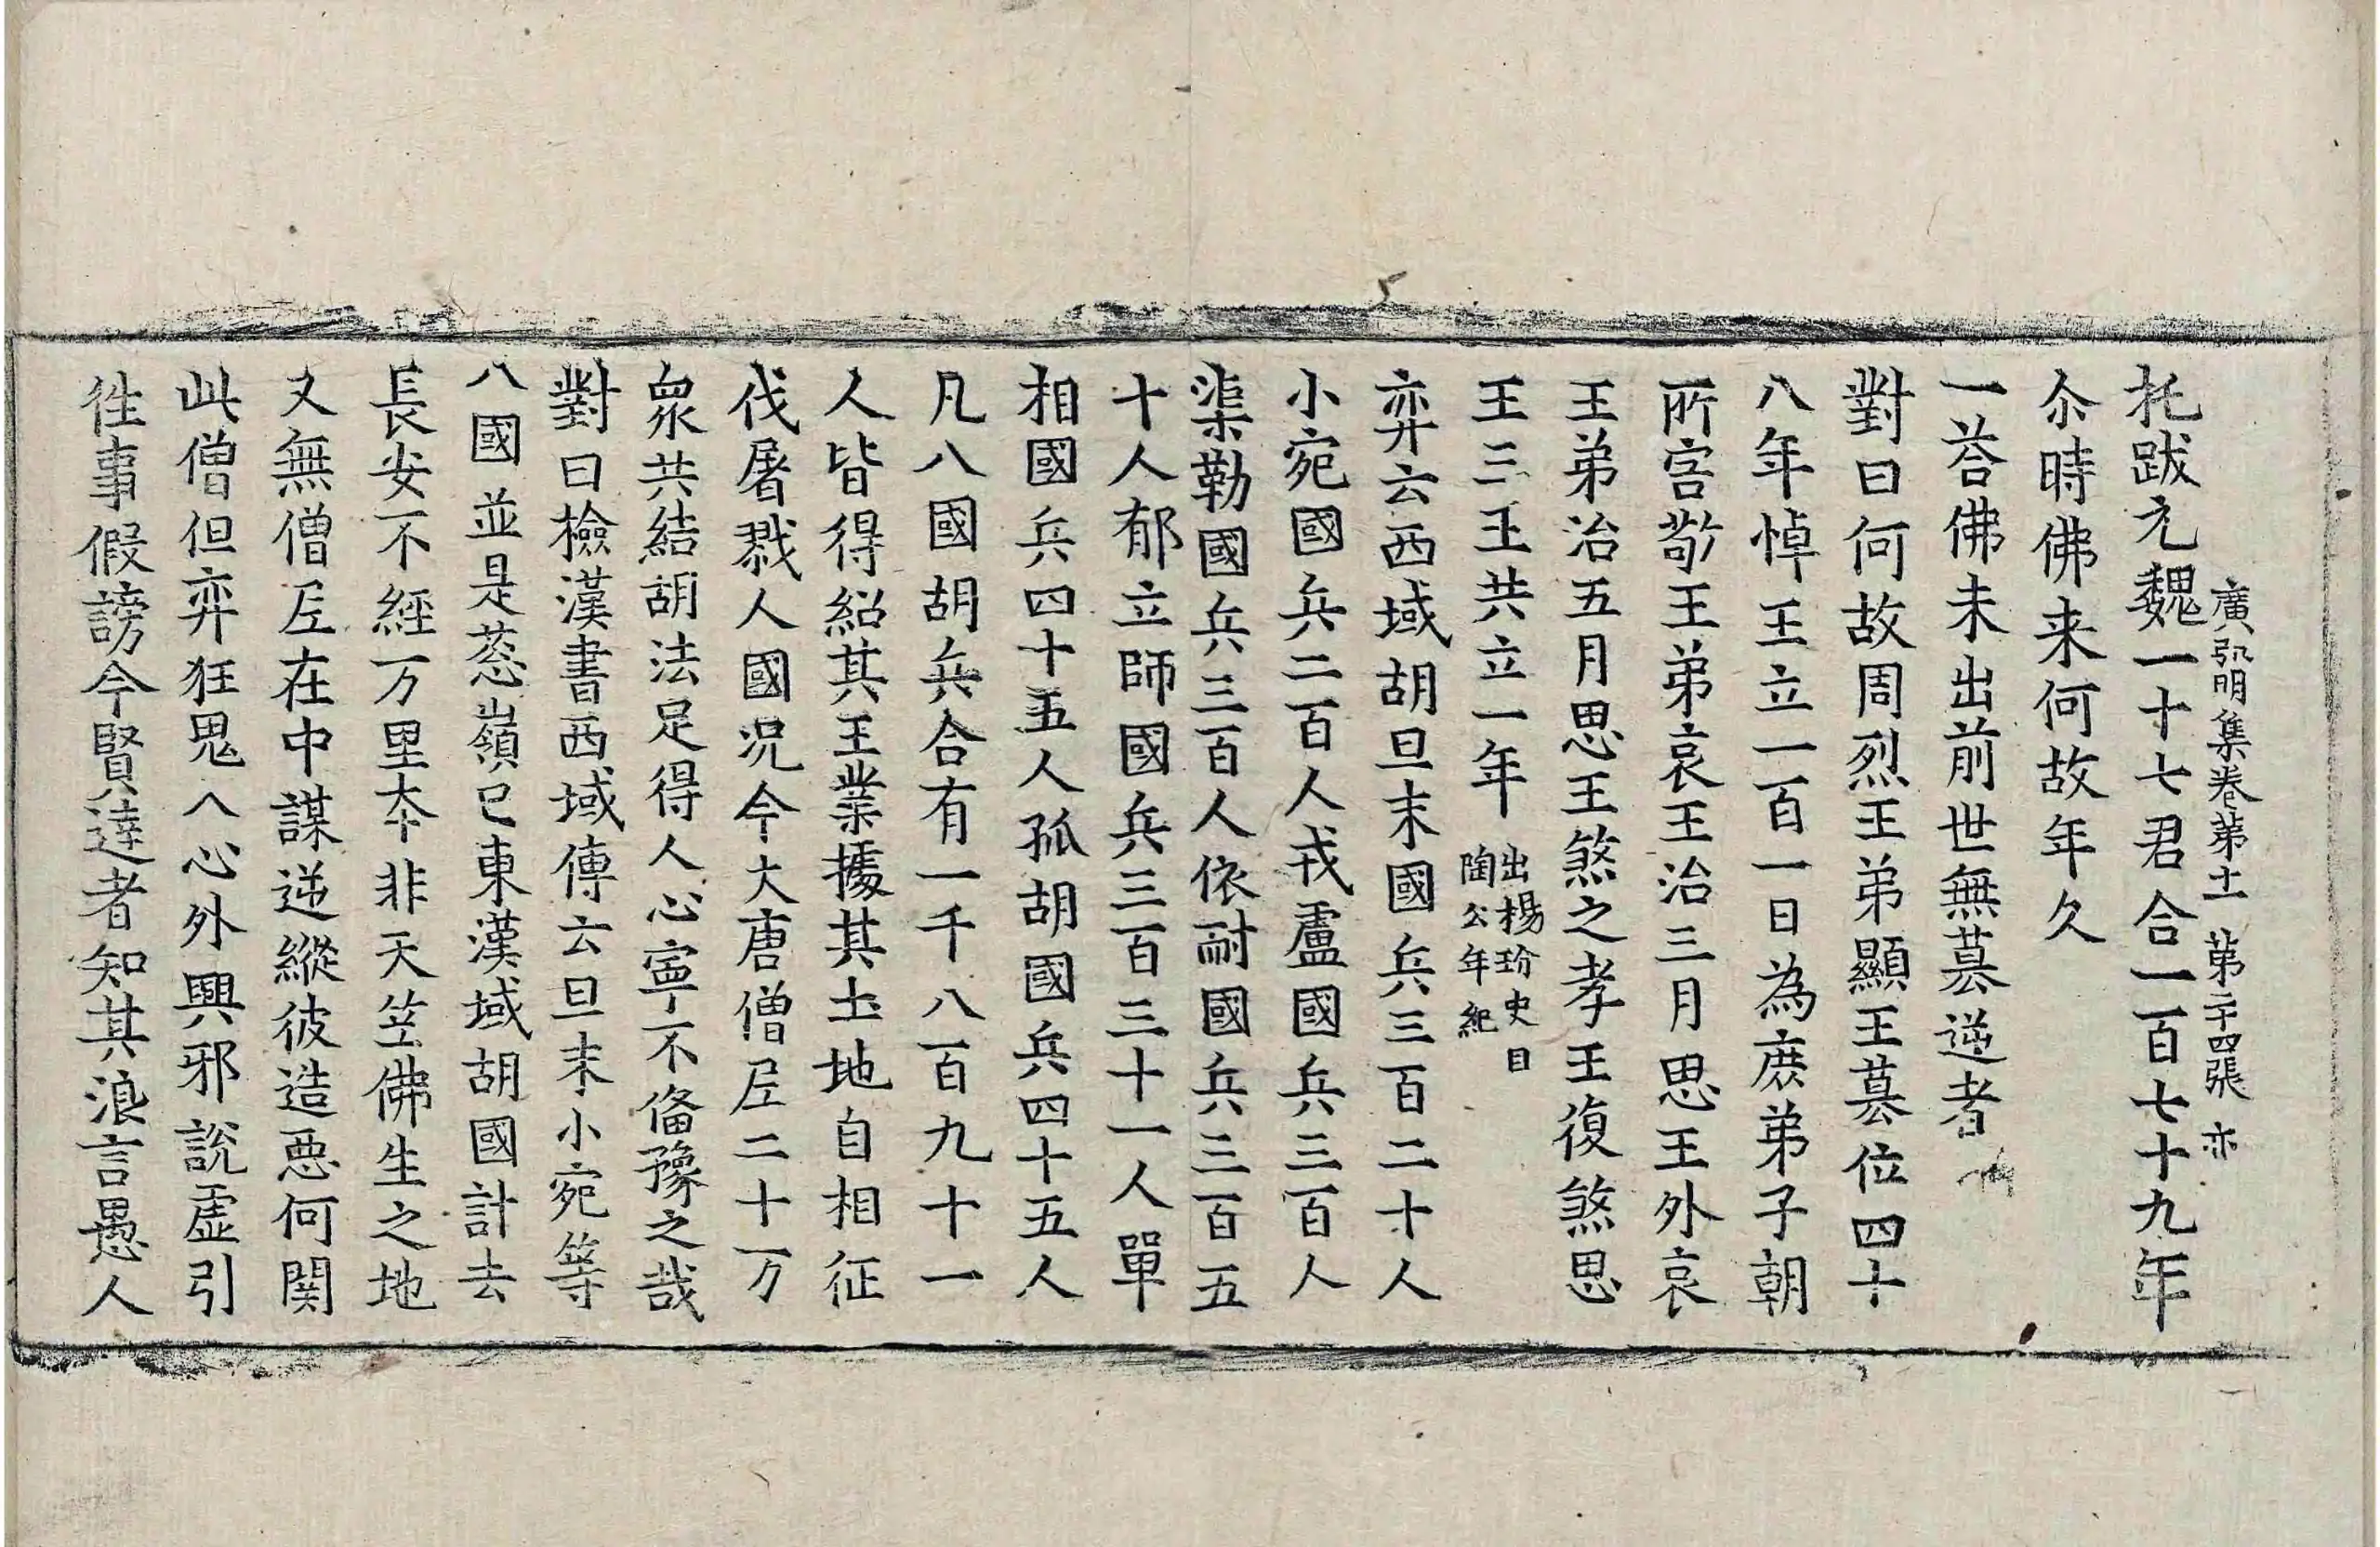 托跋元魏一十七君合一百七十九年
廣弘明集卷第十一 第二十四張 亦
尒時佛来何故年久
一荅佛未出前世無篡逆者
對曰何故周烈王弟顯王篡位四十
八年悼王立一百一日為庶弟子朝
所害敬王弟哀王治三月思王外哀
王弟治五月思王煞之孝王復煞思
王三王共立一年 出楊玢史目
陶公年紀
弈云西域胡旦末國兵三百二十人
小宛國兵二百人戎盧國兵三百人
渠勒國兵三百人依耐國兵三百五
十人郁立師國兵三百三十一人單
相國兵四十五人孤胡國兵四十五人
凡八國胡兵合有一千八百九十一
人皆得紹其王業據其土地自相征
伐屠戮人國况今大唐僧尼二十万
衆共結胡法足得人心寧不俻豫之哉
對曰檢漢書西域傳云旦末小宛等
八國並是葱嶺已東漢域胡國計去
長安不經万里夲非天笁佛生之地
又無僧尼在中謀逆縱彼造惡何関
此僧但弈狂思人心外興邪說虛引
徃事假謗今賢達者知其浪言愚人